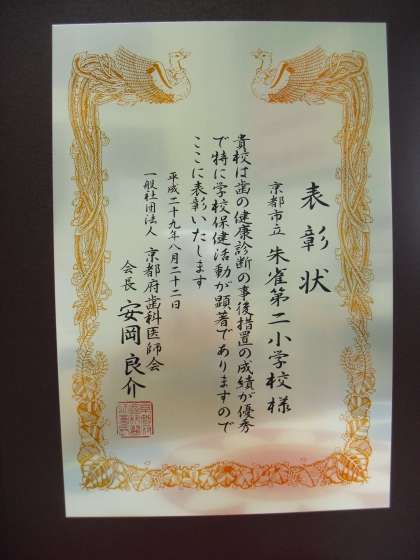 表彰状
京都市立 朱雀第二小学校様
貴校は歯の健康診断の事後措置の成績が優秀
で特に学校保健活動が顕著でありますので
ここに表彰いたします
平成二十九年八月二十二日
一般社団法人 京都府歯科医師会
会長 安岡良介